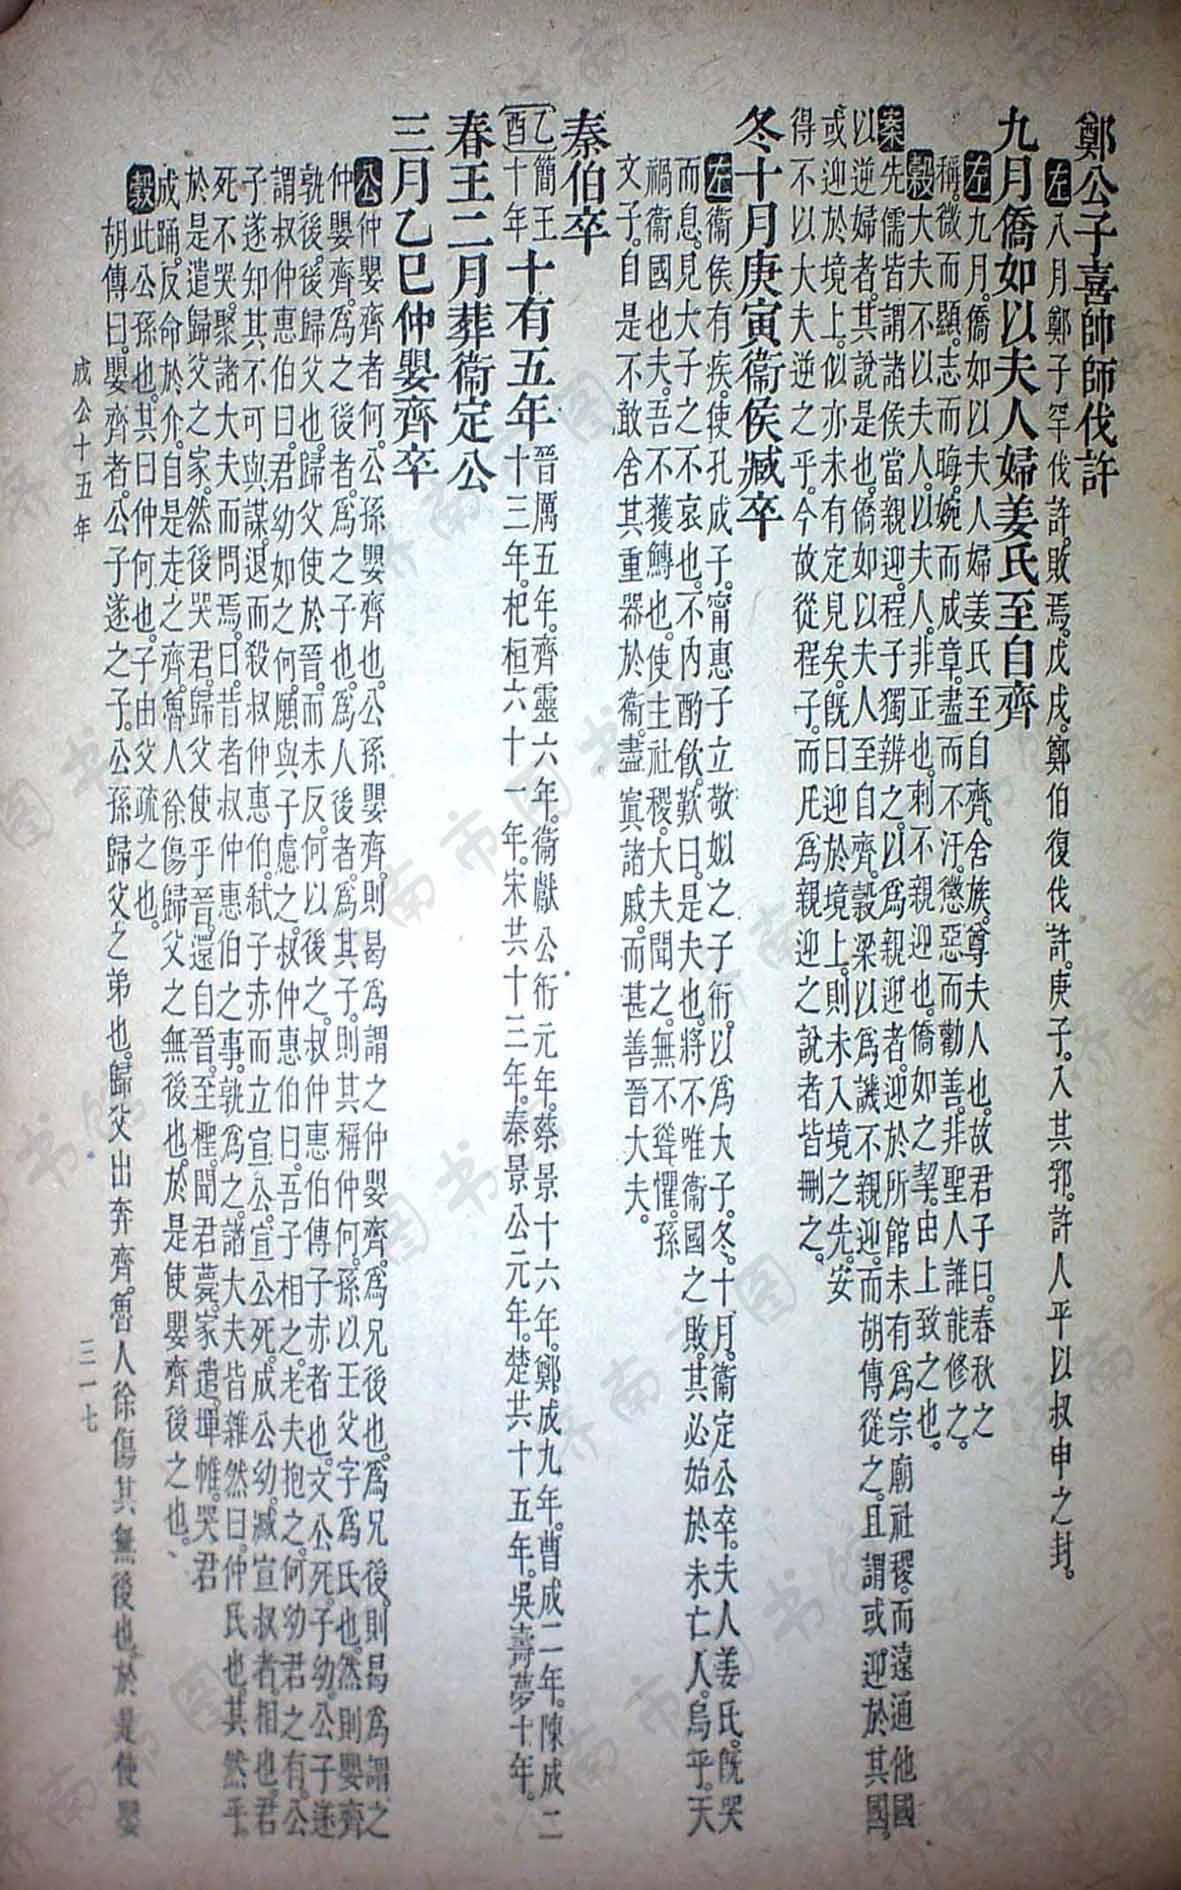 鄭公子喜帥師伐許
左八月鄭子罕伐許。敗焉。戊戌。鄭伯復伐許。庚子。入其郛。許人平以叔申之封。
九月僑如以夫人婦姜氏至自齊
左九月。僑如以夫人婦姜氏至自齊。舍族。尊夫人也。故君子曰。春秋之
稱。微而顯。志而晦。婉而成章。盡而不汙。懲惡而勸善。非聖人誰能修之。
穀大夫不以夫人。以夫人。非正也。刺不親迎也。僑如之挈。由上致之也。
案先儒皆謂諸侯當親迎。程子獨辨之。以爲親迎者。迎於所館未有爲宗廟社稷。而遠適他國
以逆婦者。其說是也。僑如以夫人至自齊。穀梁以爲譏不親迎。而胡傳從之。且謂或迎於其國。
或迎於境上。似亦未有定見矣。旣曰迎於境上。則未入境之先。安
得不以大夫逆之乎。今故從程子。而凡爲親迎之說者皆刪之。
冬十月庚寅衞侯臧卒
左衞侯有疾。使孔成子。甯惠子立敬姒之子衎。以爲大子。冬。十月。衞定公卒。夫人姜氏。旣哭
而息。見大子之不哀也。不內酌飮。歎曰。是夫也。將不唯衞國之敗。其必始於未亡人。烏乎。天
禍衞國也夫。吾不獲鱄也。使主社稷。大夫聞之。無不聳懼。孫
文子。自是不敢舍其重器於衞。盡寘諸戚。而甚善晉大夫。
秦伯卒
乙酉簡王十年十有五年晉厲五年。齊靈六年。衞獻公衎元年。蔡景十六年。鄭成九年。曹成二年。陳成二
十三年。杞桓六十一年。宋共十三年。秦景公元年。楚共十五年。吳壽夢十年。
春王二月葬衞定公
三月乙巳仲嬰齊卒
公仲嬰齊者何。公孫嬰齊也。公孫嬰齊。則曷爲謂之仲嬰齊。爲兄後也。爲兄後。則曷爲謂之
仲嬰齊。爲之後者。爲之子也。爲人後者。爲其子。則其稱仲何。孫以王父字爲氏也。然則嬰齊
孰後。後歸父也。歸父使於晉。而未反。何以後之。叔仲惠伯傅子赤者也。文公死。子幼。公子遂
謂叔仲惠伯曰。君幼如之何。願與子慮之。叔仲惠伯曰。吾子相之。老夫抱之。何幼君之有。公
子遂知其不可與謀。退而殺叔仲惠伯。弒子赤而立宣公。宣公死。成公幼。臧宣叔者。相也。君
死不哭。聚諸大夫而問焉。曰。昔者叔仲惠伯之事。孰爲之。諸大夫皆雜然曰。仲氏也其然乎。
於是遣歸父之家。然後哭君。歸父使乎晉。還自晉。至檉。聞君薨。家遣。墠帷。哭君
成踊。反命於介。自是走之齊。魯人徐傷歸父之無後也。於是使嬰齊後之也。
穀此公孫也。其曰仲何也。子由父疏之也。
胡傳曰。嬰齊者。公子遂之子。公孫歸父之弟也。歸父出奔齊。魯人徐傷其無後也。於是使嬰
成公十五年
三一七